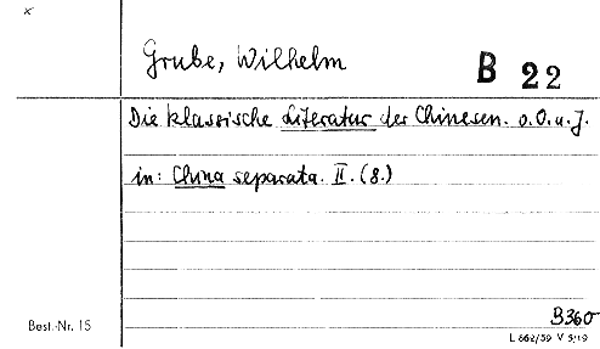 x
Grube, Wilhelm
B 22
Die klassische Literatur der Chinesen. o.O.u.J.
in: China separata. II. (8.)
B360
Best.-Nr. 15
L 662/59 V 5/19